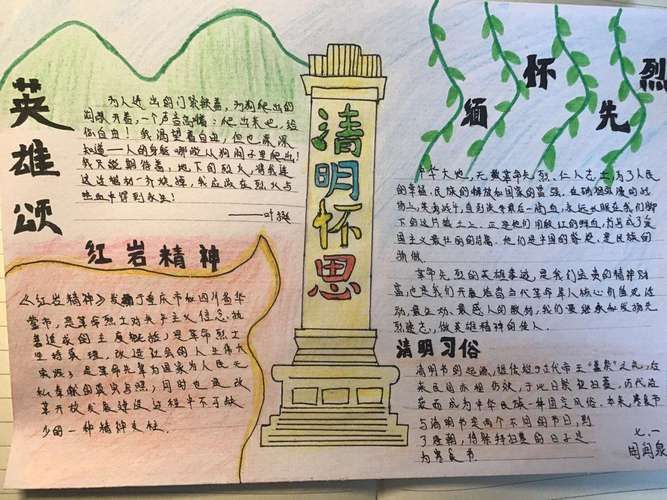 英雄颂
为人进出的门紧锁着，为狗爬出的
洞敞开着，一个声音高叫着：爬出来吧，给
你自由！我渴望着自由，但也深深
知道——人的身躯哪能从狗洞子里爬出！
我只能期待着，地下的烈火，将我连
这活棺材一齐烧掉，我应该在烈火与
热血中得到永生！
——叶挺
红岩精神
《红岩精神》
重庆市和四川省华
蓥市，是革命烈士对共产主义信念执
着追求的
是革命烈士
改造社会的
是革命先辈为国家为人民无
私奉献的真实
同时也是改
革开放发展建设过程中不可缺
少的一种精神支柱。
清明怀思
缅怀先烈
中华大地，无数革命先烈、仁人志士，为了人民
的幸福、民族的解放和国家的富强，在硝烟弥漫的战
场上，
直到流尽最后一滴血，永远长眠在我们脚
下的这片热土上。正是他们用殷红的鲜血，
国主义最壮丽的
他们是中国的脊梁，是民族的
骄傲。
革命先烈的英雄事迹，是我们宝贵的精神财
富，也是我们开展
核心价值观活
动，最生动、最感人的教材，我们要继承和发扬先
烈遗志，做英雄精神的传人。
清明习俗
清明节的起源，据传始于古代帝王
之礼，后
来民间亦相仿效，于此日祭祖扫墓，历代沿
袭而成为中华民族一种固定风俗。本来，寒食节
与清明节是两个不同的节日，到
了唐朝，将祭拜扫墓的日子定
为寒食节
七.一